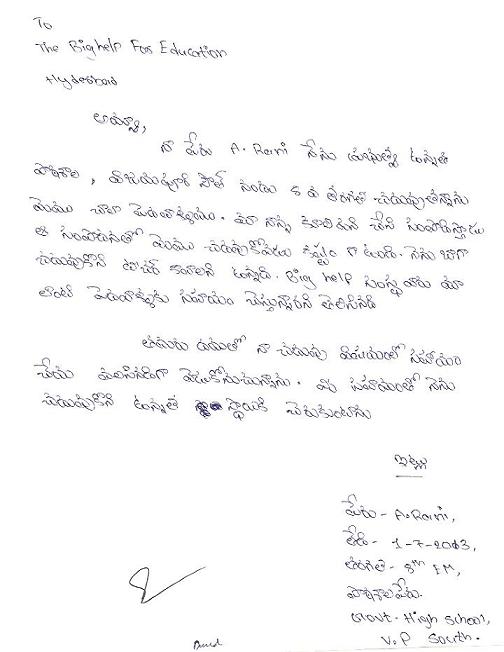 To
The Bighelp For Education
Hyderbad
అయ్యా,
నా పేరు A. Rani నేను ప్రభుత్వ ఉన్నత
పాఠశాల, విజయపూరి సౌత్ నందు 8 వ తరగతి చదువుతున్నాను
మేము చాలా పేదవాళ్ళము. మా నాన్న కూలిపని చేసి సంపాదిస్తాడు
ఆ సంపాదనతో మేము చదువుకోవడం కష్టం గా ఉంది. నేను బాగా
చదువుకొని టీచర్ కావాలని ఉన్నది. Big help సంస్థ వారు మా
లాంటి పేదవాళ్ళకు సహాయం చేస్తున్నారని తెలిసినది
తమరు దయతో నా చదువు విషయంలో సహాయం
చేయ వలసినదిగా వేడుకొనుచున్నాను. మీ సహాయంతో నేను
చదువుకొని ఉన్నత స్థాయికి చేరుకుంటాను
ఇట్లు
పేరు - A. Rani,
తేది - 1-7-2013,
తరగతి - 8th EM,
పాఠశాల పేరు.
Govt. High School,
V.P South.